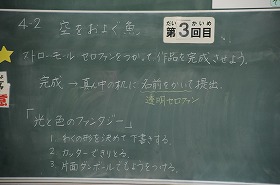 4-2 空をおよぐ魚。
だい かいめ
第3回目
ストローモール セロファンをつかって 作品を完成させよう。
完成 → 真ん中の机に 名前をかいて提出。
透明セロファン
「光と色のファンタジー」
1. わくの形を決めて下書きする
2. カッターできりとる。
3. 片面ダンボールでもようをつける。